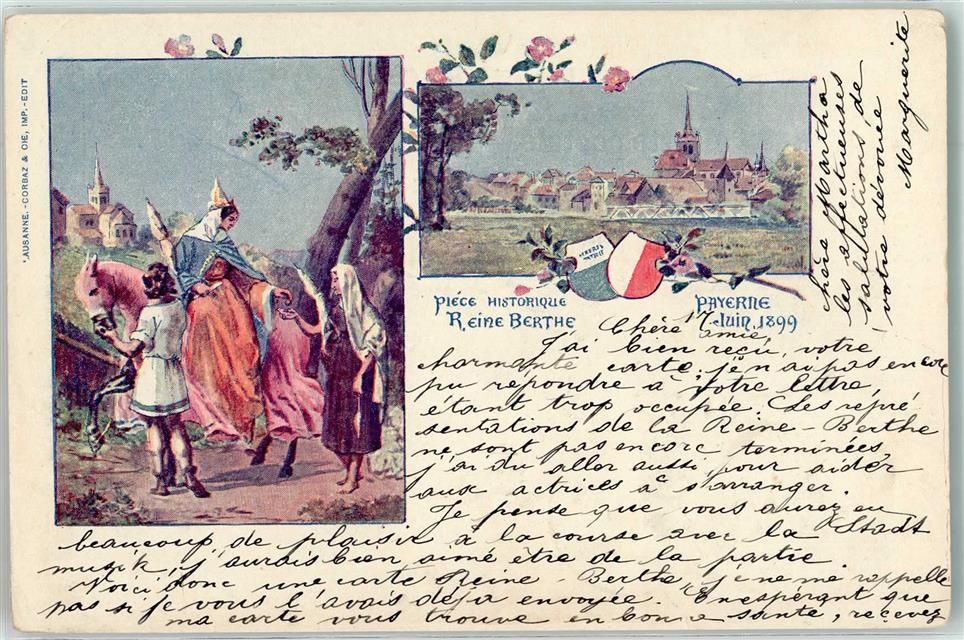 LAUSANNE.-CORBAZ & CIE, IMP.-EDIT
PIÉCE HISTORIQUE
REINE BERTHE
PAYERNE
17 JUIN 1899
LIBERTÉ
PATRIE
Chère amie,
J'ai bien reçu, votre
charmante carte; je n'ai pas encore
pu répondre à votre lettre,
étant trop occupée. Les repré
sentations de la Reine-Berthe
ne sont pas encore terminées,
j'ai du aller aussi, pour aider
aux actrices à s'arranger.
Je pense que vous aurez eu
beaucoup de plaisir à la course avec la Stadt
musik, j'aurais bien aimé être de la partie.
Voici donc une carte Reine-Berthe, je ne me rappelle
pas si je vous l'avais déjà envoyée. En espérant que
ma carte vous trouve en bonne santé, recevez
chère Martha
les affectueuses
salutations de
votre dévouée
Marguerite